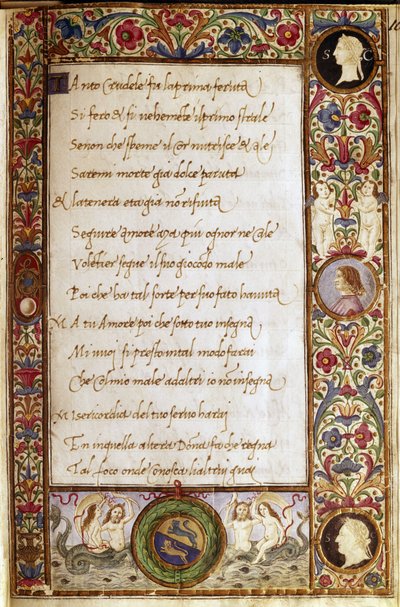 TAnto Crudele fu la prima feruta
Si fero & si uehemẽte il primo strale
Se non che speme il cor nutrisce & ale
Saremi morte gia dolce paruta
& la tenera eta gia nõ rifiuta
Seguire Amore ma piu ognor ne cale
Volẽtier segue il suo giocõdo male
Poi che ha tal sorte per suo fato hauuta
MA tu Amore poi che sotto tuo insegna
Mi uuoi si presto in tal modo farai
Che col mio male ad altri io nõ insegna
Misericordia del tuo seruo harai
En in quella altera Dõna fa che regna
Tal foco onde conosca li altrui guai
S C
S